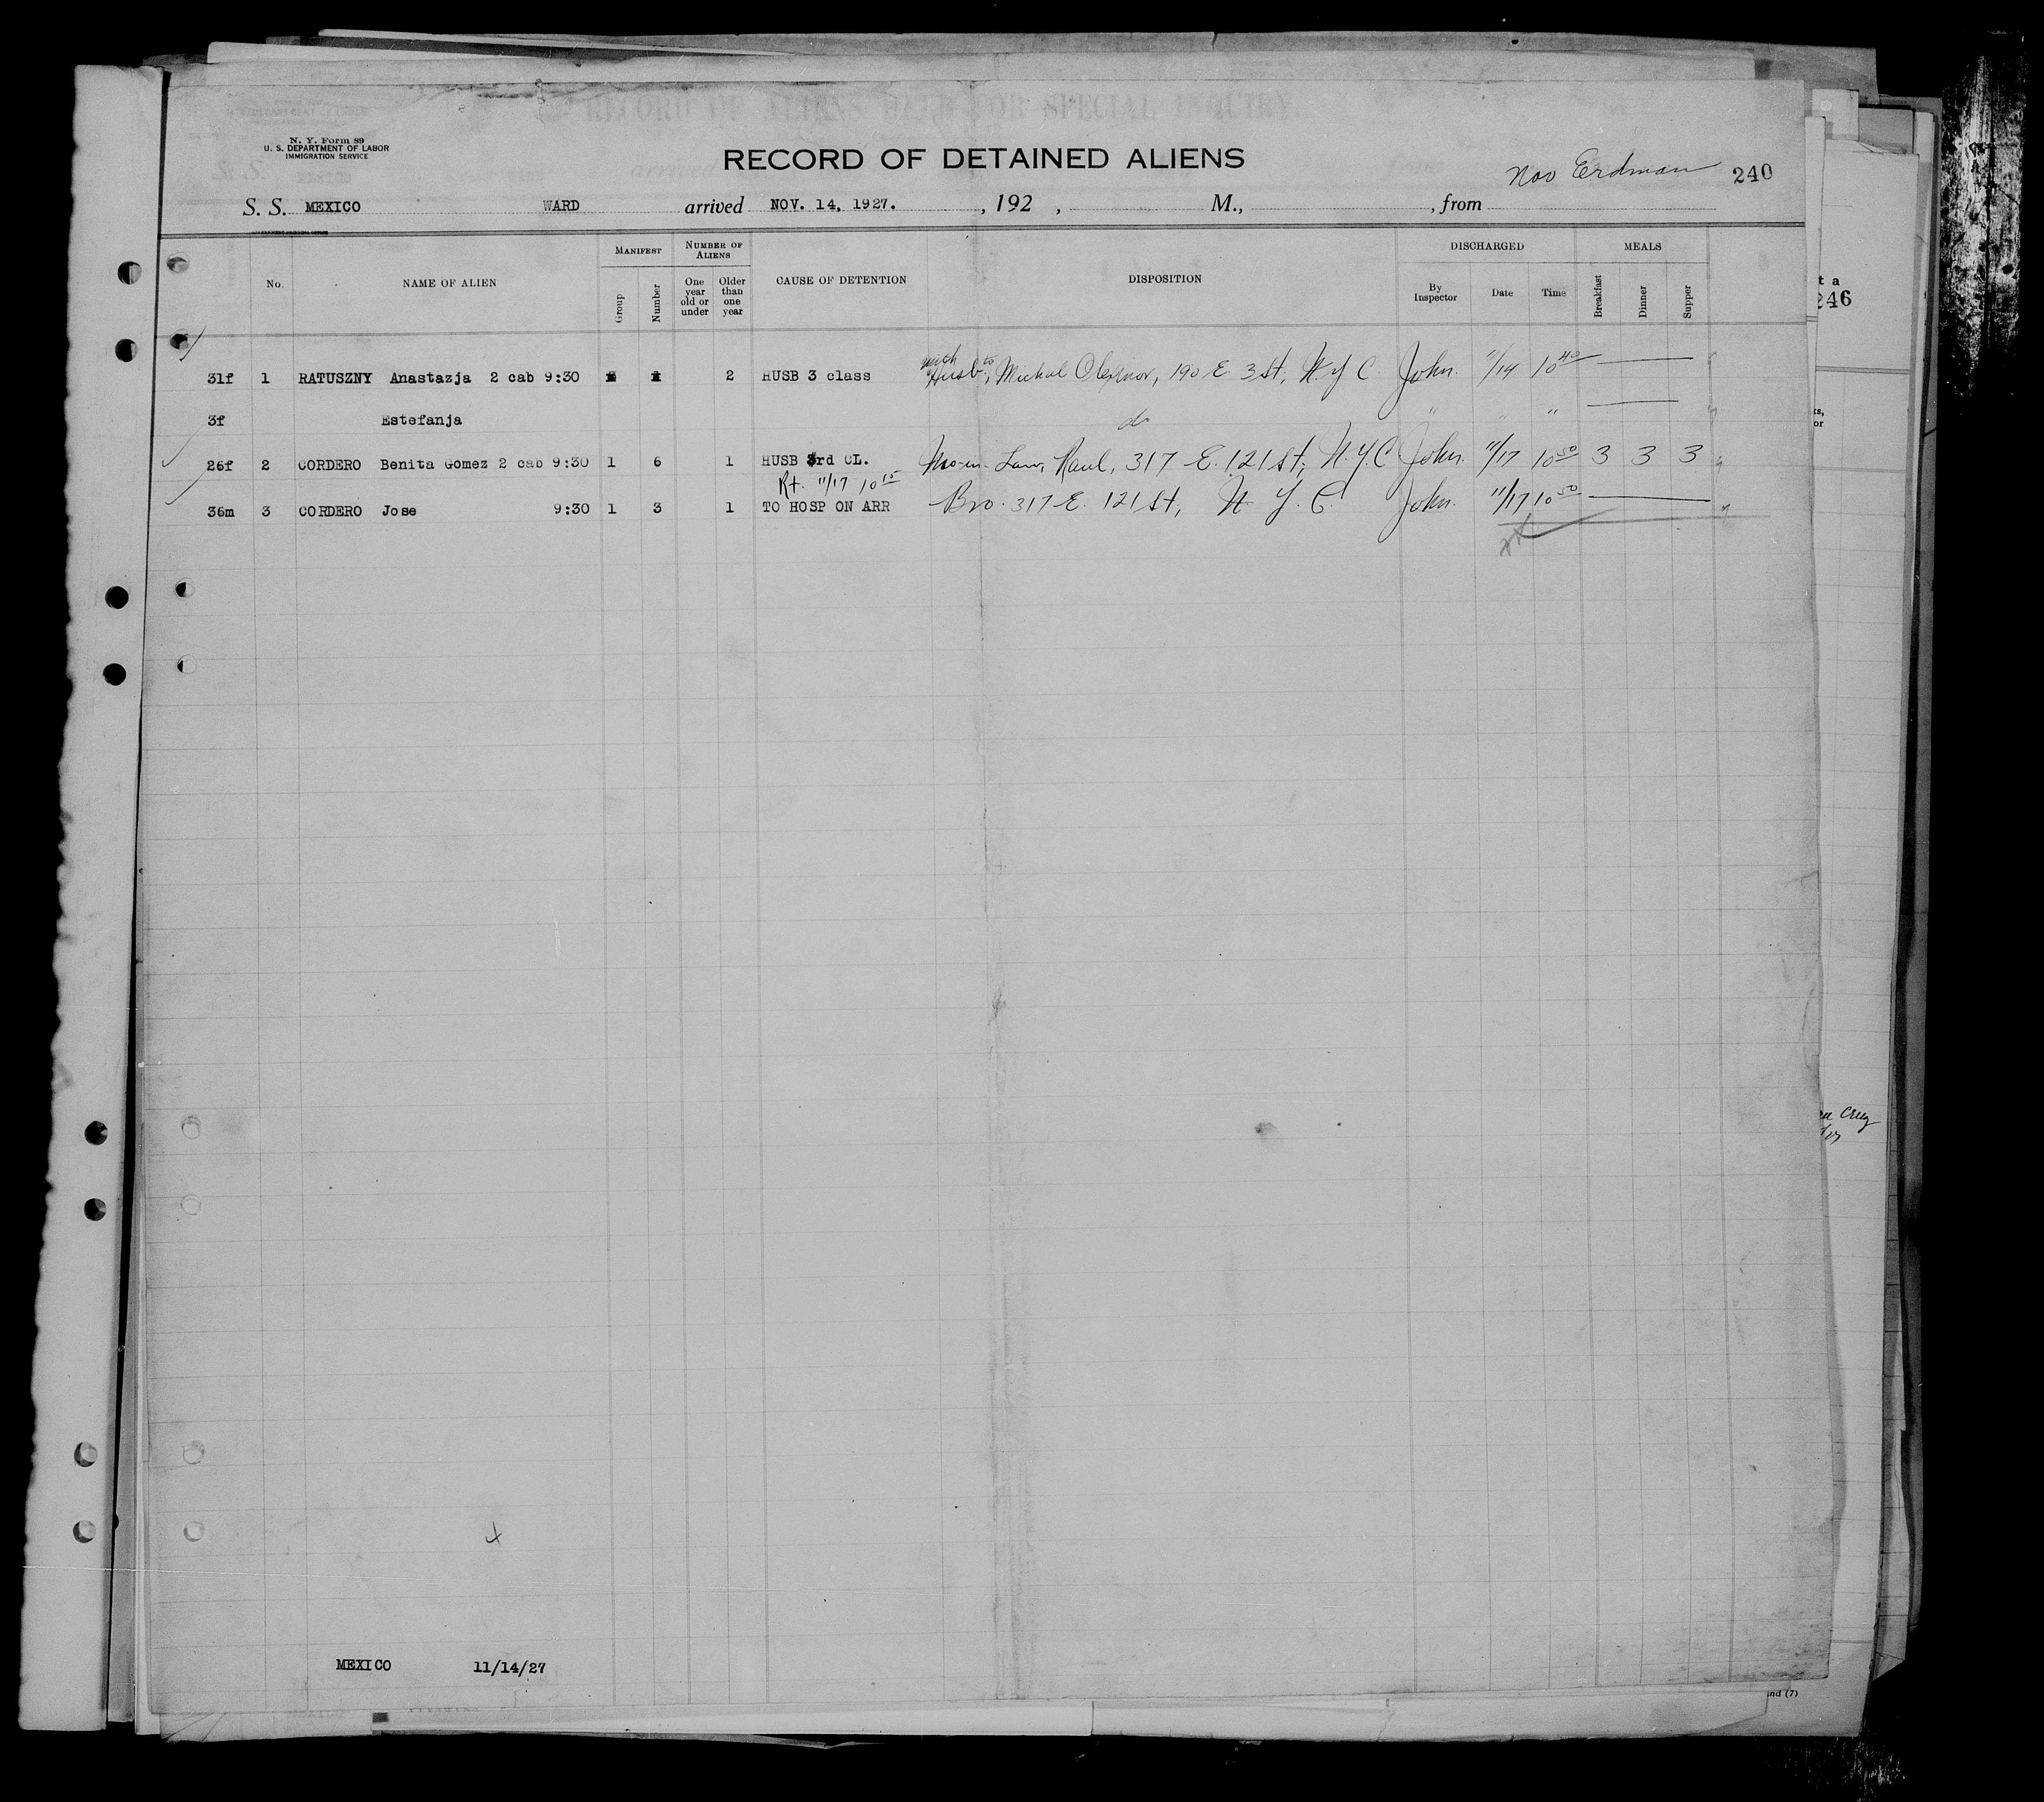 RECORD OF ALIENS HELD FOR SPECIAL INQUIRY.
N. Y. Form 89
U. S. DEPARTMENT OF LABOR
IMMIGRATION SERVICE
RECORD OF DETAINED ALIENS
Nov Erdman 240
S. S. MEXICO WARD arrived NOV. 14, 1927. , 192 , M., , from
No. NAME OF ALIEN MANIFEST Group Number NUMBER OF ALIENS One year old or under Older than one year CAUSE OF DETENTION DISPOSITION DISCHARGED By Inspector Date Time MEALS Breakfast Dinner Supper
31f 1 RATUSZNY Anastazja 2 cab 9:30 2 HUSB 3 class with Husb, to Michal 190 E 3 St, N.Y C John. 11/14 10 40
3f Estefanja do " " "
26f 2 CORDERO Benita Gomez 2 cab 9:30 1 6 1 HUSB 3rd CL. Bro-in-Law, Raul, 317 E. 121 St, N.Y.C John. 11/17 10 50 3 3 3
Rt. 11/17 10 15
36m 3 CORDERO Jose 9:30 1 3 1 TO HOSP ON ARR Bro. 317 E. 121 St, N. Y. C. John. 11/17 10 50
MEXICO 11/14/27
t a
246
ks,
or
Cruz
and (7)